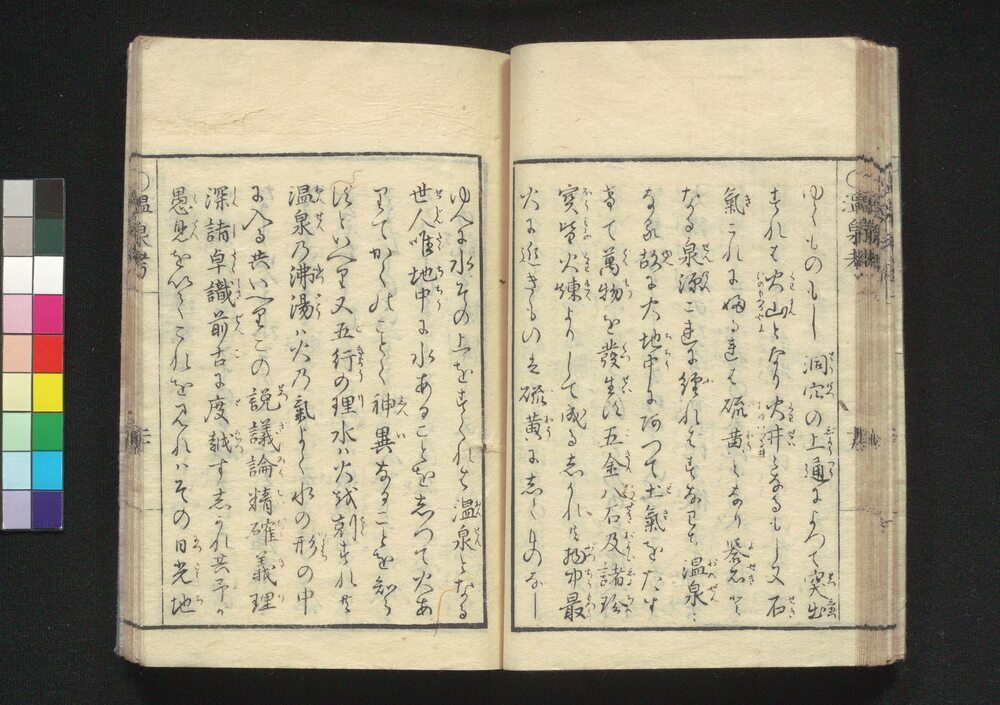 ゆくものもし洞穴の上通によつて突出
すれは火山となり火井となるもし又石
氣これに婦るれは硫黄となり礬石と
なる泉源これに纏れはすなはち温泉と
なる故に大地中に在つて土氣をたす
けて萬物を發生す五金八石及諸
寶皆火煉よりして成るしかれ共物中最
火に近きもの是硫黄にしくものなし
ゆへに水その上をすくれは温泉となる
世人唯地中に水あることをしつて火あ
りてかくのことく神異なることを知ら
すといへり又五行の理水ハ火を剋すれ共
温泉の沸湯ハ火の氣よく水の形の中
に入る共いへりこの説議論精確義理
深諸卓識前古に度越すしかれ共予か
愚見を以てこれを見れハその日光地
○温泉考
○温泉考